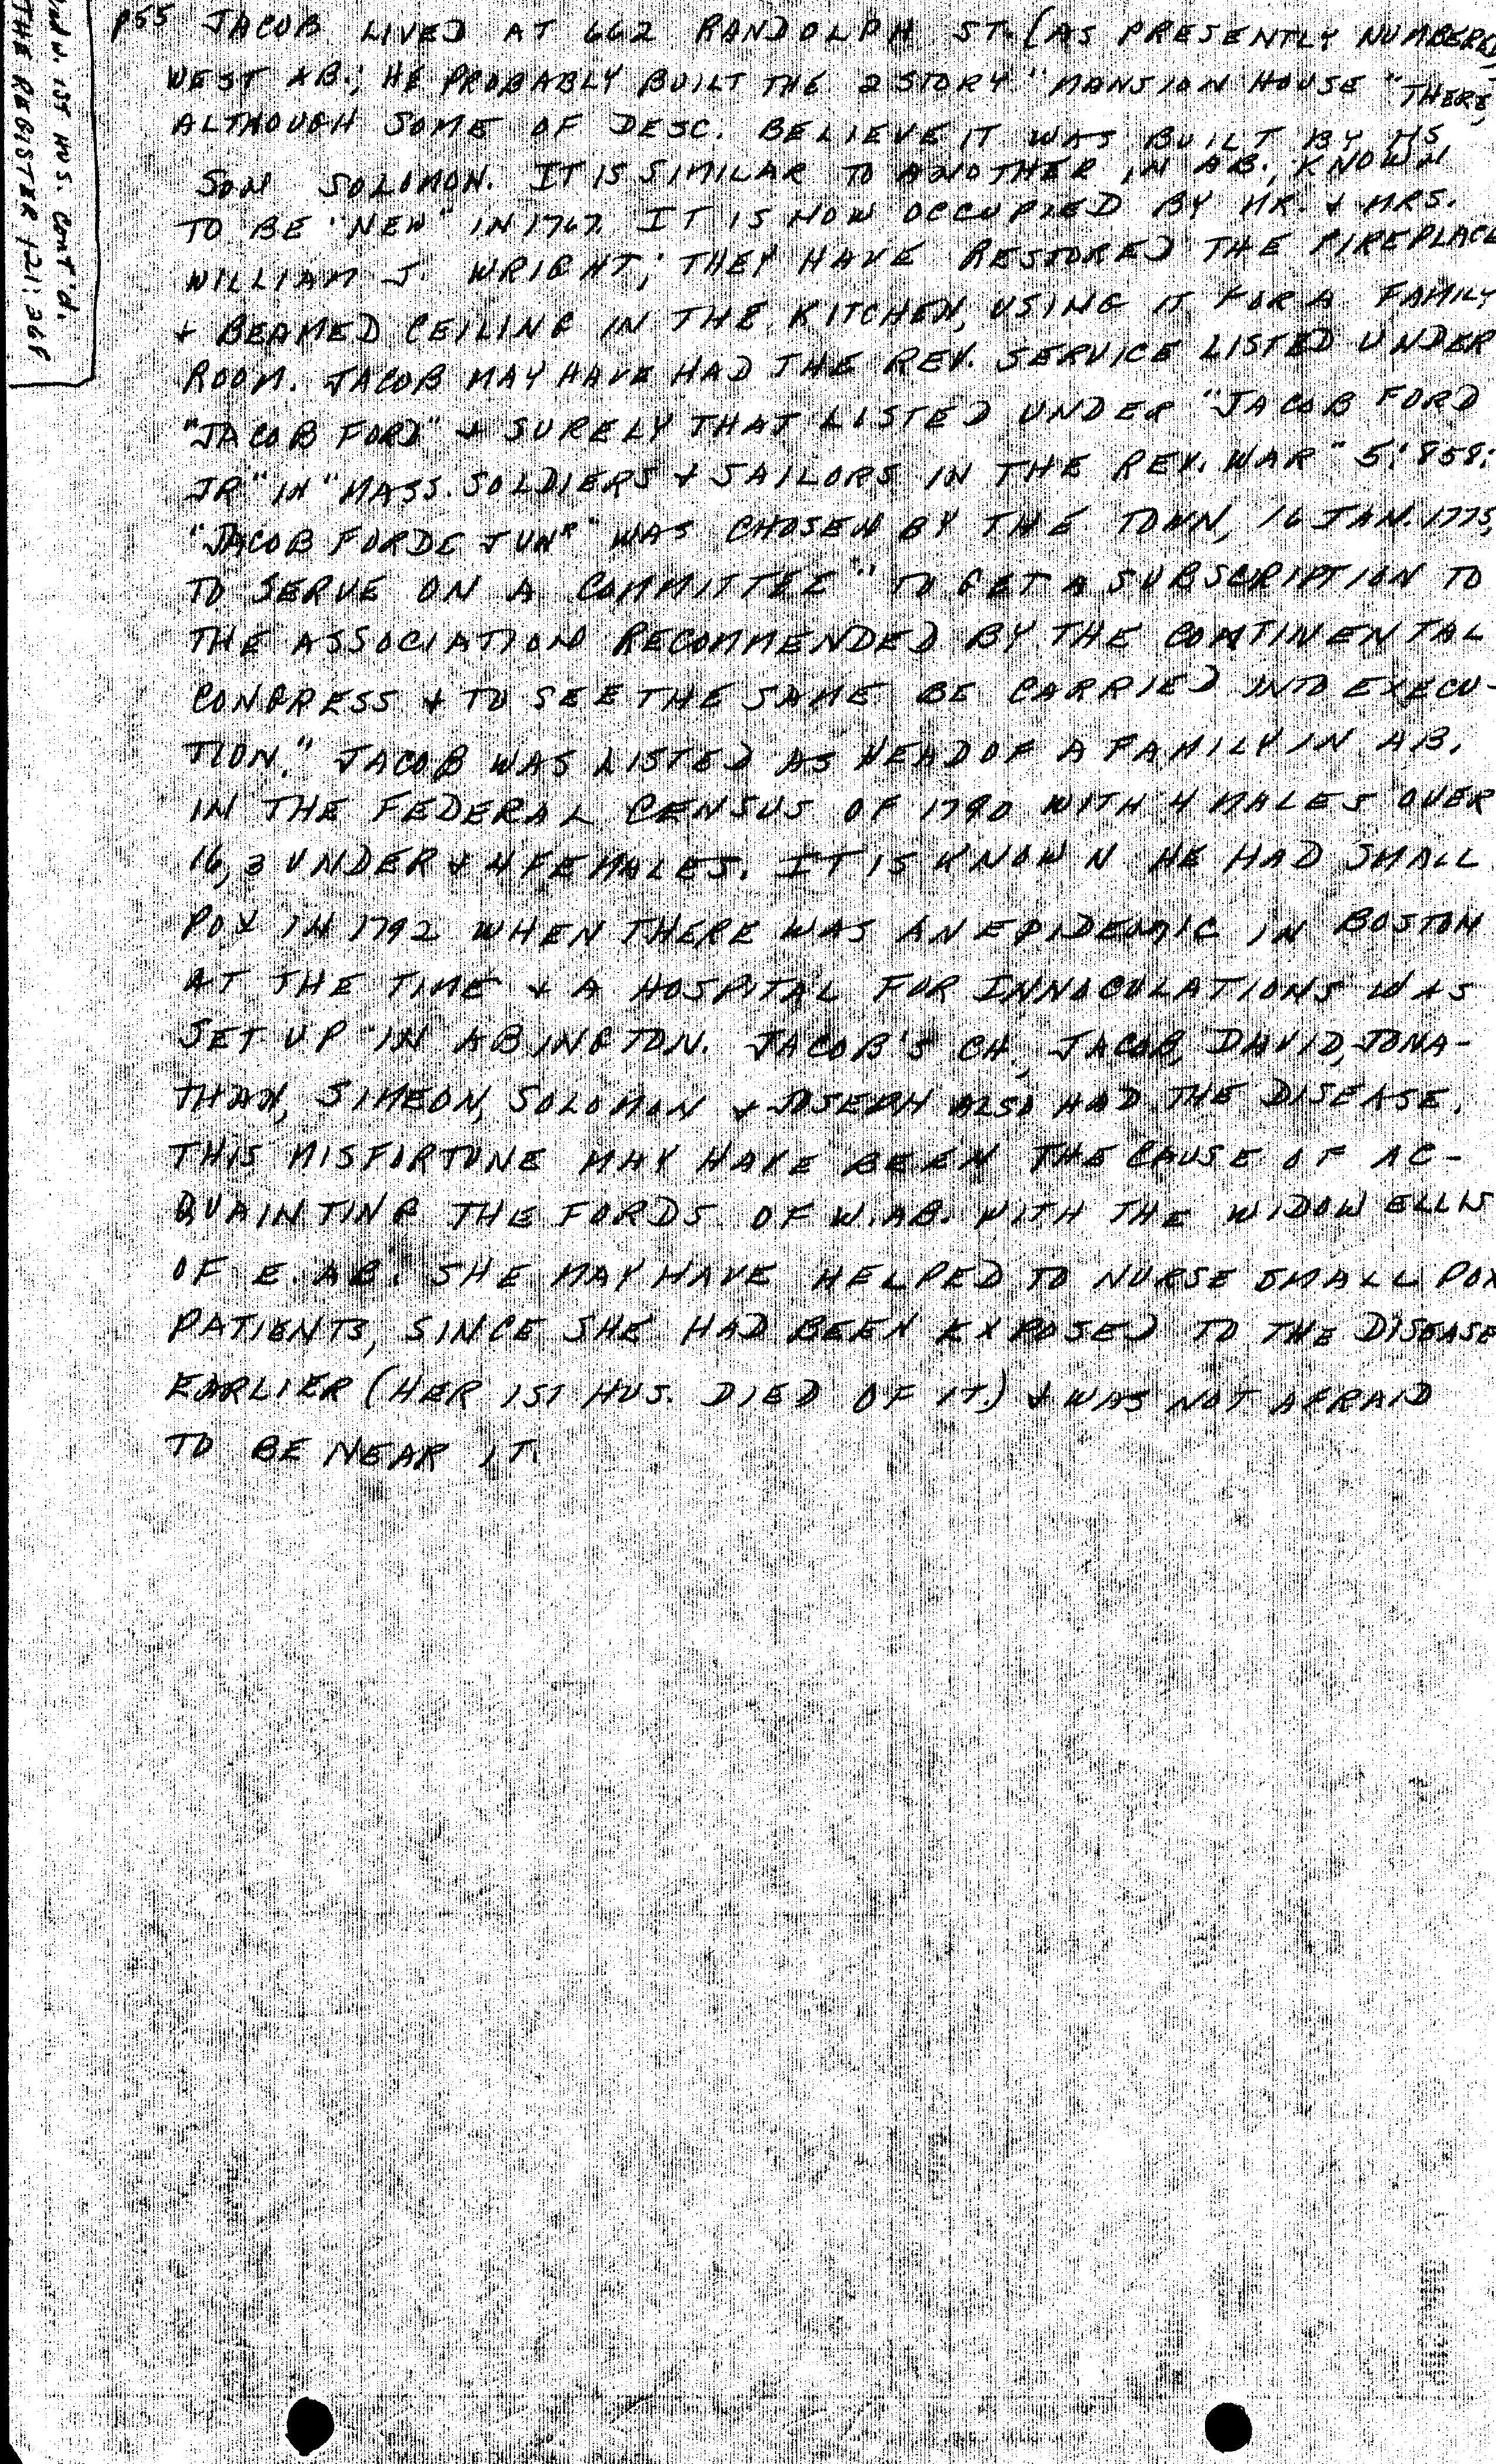 p55 JACOB LIVED AT 662 RANDOLPH ST. (AS PRESENTLY NUMBERED)
WEST AB.; HE PROBABLY BUILT THE 2 STORY "MANSION HOUSE" THERE,
ALTHOUGH SOME OF DESC. BELIEVE IT WAS BUILT BY HS
SON SOLOMON. IT IS SIMILAR TO ANOTHER IN AB., KNOWN
TO BE "NEW" IN 1767. IT IS NOW OCCUPIED BY MR. & MRS.
WILLIAM J. WRIGHT; THEY HAVE RESTORED THE FIREPLACE
& BEAMED CEILING IN THE KITCHEN, USING IT FOR A FAMILY
ROOM. JACOB MAY HAVE HAD THE REV. SERVICE LISTED UNDER
"JACOB FORD" & SURELY THAT LISTED UNDER "JACOB FORD
JR" IN "MASS. SOLDIERS & SAILORS IN THE REV. WAR" 5:858:
"JACOB FORDE JUNR" WAS CHOSEN BY THE TOWN, 16 JAN. 1775,
TO SERVE ON A COMMITTEE "TO GET A SUBSCRIPTION TO
THE ASSOCIATION RECOMMENDED BY THE CONTINENTAL
CONGRESS & TO SEE THE SAME BE CARRIED INTO EXECU-
TION." JACOB WAS LISTED AS HEAD OF A FAMILY IN AB.
IN THE FEDERAL CENSUS OF 1790 WITH 4 MALES OVER
16, 3 UNDER & 4 FEMALES. IT IS KNOWN HE HAD SMALL
POX IN 1792 WHEN THERE WAS AN EPIDEMIC IN BOSTON
AT THE TIME & A HOSPITAL FOR INNOCULATIONS WAS
SET UP IN ABINGTON. JACOB'S CH, JACOB, DAVID, JONA-
THAN, SIMEON, SOLOMON & JOSEPH ALSO HAD THE DISEASE.
THIS MISFORTUNE MAY HAVE BEEN THE CAUSE OF AC-
QUAINTING THE FORDS OF W. AB. WITH THE WIDOW ELLIS
OF E. AB. SHE MAY HAVE HELPED TO NURSE SMALL POX
PATIENTS, SINCE SHE HAD BEEN EXPOSED TO THE DISEASE
EARLIER (HER 1ST HUS. DIED OF IT.) & WAS NOT AFRAID
TO BE NEAR IT.
W. 1ST HUS. Cont'd.
THE REGISTER 121:268